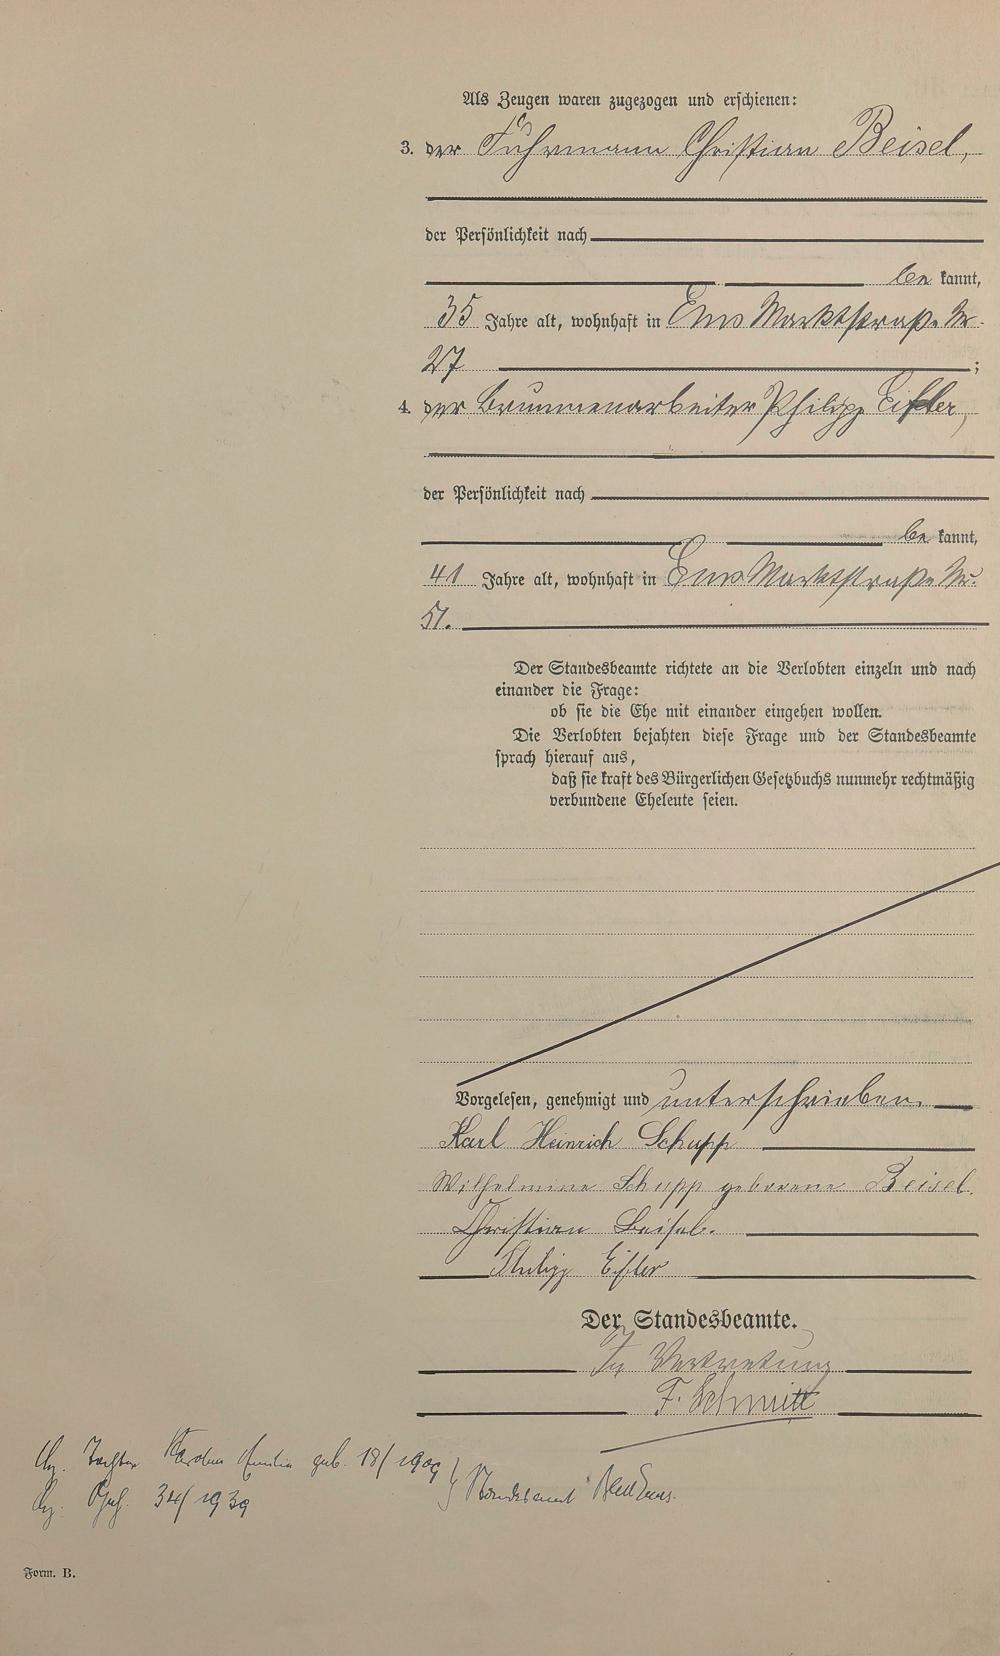 Als Zeugen waren zugezogen und erschienen:
3. der Fuhrmann Christian Beisel,
der Persönlichkeit nach
be kannt,
35 Jahre alt, wohnhaft in Ems Marktstraße Nr.
27 ;
4. der Brunnenarbeiter Philipp Eifler,
der Persönlichkeit nach
be kannt,
41 Jahre alt, wohnhaft in Ems Marktstraße Nr.
51.
Der Standesbeamte richtete an die Verlobten einzeln und nach
einander die Frage:
ob sie die Ehe mit einander eingehen wollen.
Die Verlobten bejahten diese Frage und der Standesbeamte
sprach hierauf aus,
daß sie kraft des Bürgerlichen Gesetzbuchs nunmehr rechtmäßig
verbundene Eheleute seien.
Vorgelesen, genehmigt und unterschrieben.
Karl Heinrich Schupp
Wilhelmine Schupp geborene Beisel.
Christian Beisel.
Philipp Eifler
Der Standesbeamte.
In Vertretung
F. Schmitt
Tochter Emilie geb. 18/1909
34/1939
Standesamt Bad Ems.
Form. B.